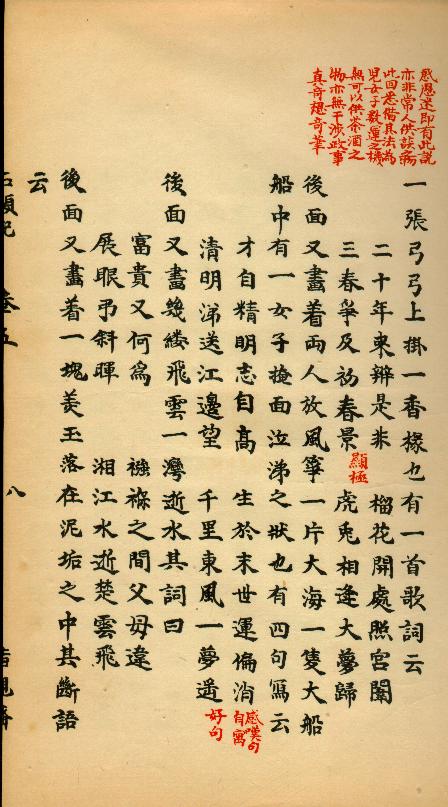 惑愚迷即有此說
亦非常人供談之物
此回悉借其法為
兒女子數運之機
無可以供茶酒之
物亦無干涉政事
真奇想奇筆
一張弓弓上掛一香櫞也有一首歌詞云
二十年來辨是非 榴花開處照宮闈
三春爭及初春景 顯極 虎兔相逢大夢歸
後面又畫着兩人放風箏一片大海一隻大船
船中有一女子掩面泣涕之狀也有四句寫云
才自精明志自高 生於末世運偏消 感嘆句自寓
清明涕送江邊望 千里東風一夢遙 好句
後面又畫幾縷飛雲一灣逝水其詞曰
富貴又何為 襁褓之間父母違
展眼弔斜暉 湘江水逝楚雲飛
後面又畫着一塊美玉落在泥垢之中其斷語
云
石頭記 卷五 八 脂硯齋